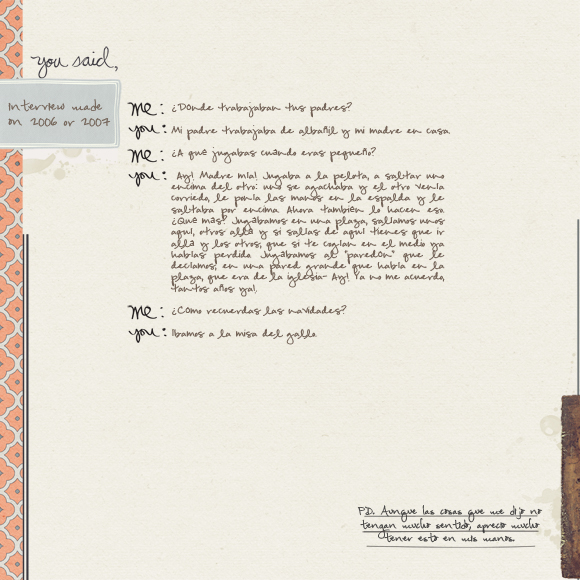 you said,
Interview made
on 2006 or 2007
me: ¿Dónde trabajaban tus padres?
you: Mi padre trabajaba de albañil y mi madre en casa.
me: ¿A qué jugabas cuándo eras pequeño?
you: Ay! Madre mía! Jugaba a la pelota, a saltar uno
encima del otro: uno se agachaba y el otro venía
corriedo, le ponía las manos en la espalda y le
saltaba por encima Ahora también lo hacen esa
¿Qué más? Jugábamos en una plaza, salíamos unos
aquí, otros allá y si salías de aquí tienes que ir
allá y los otros, que si te cogían en el medio ya
habías perdido Jugábamos al "paredón" que le
decíamos, en una pared grande que había en la
plaza, que era de la iglesia- Ay! Ya no me acuerdo,
tantos años ya!,
me: ¿Cómo recuerdas las navidades?
you: Íbamos a la misa del gallo.
PD. Aunque las cosas que me dijo no
tengan mucho sentido, aprecio mucho
tener esto en mis manos.